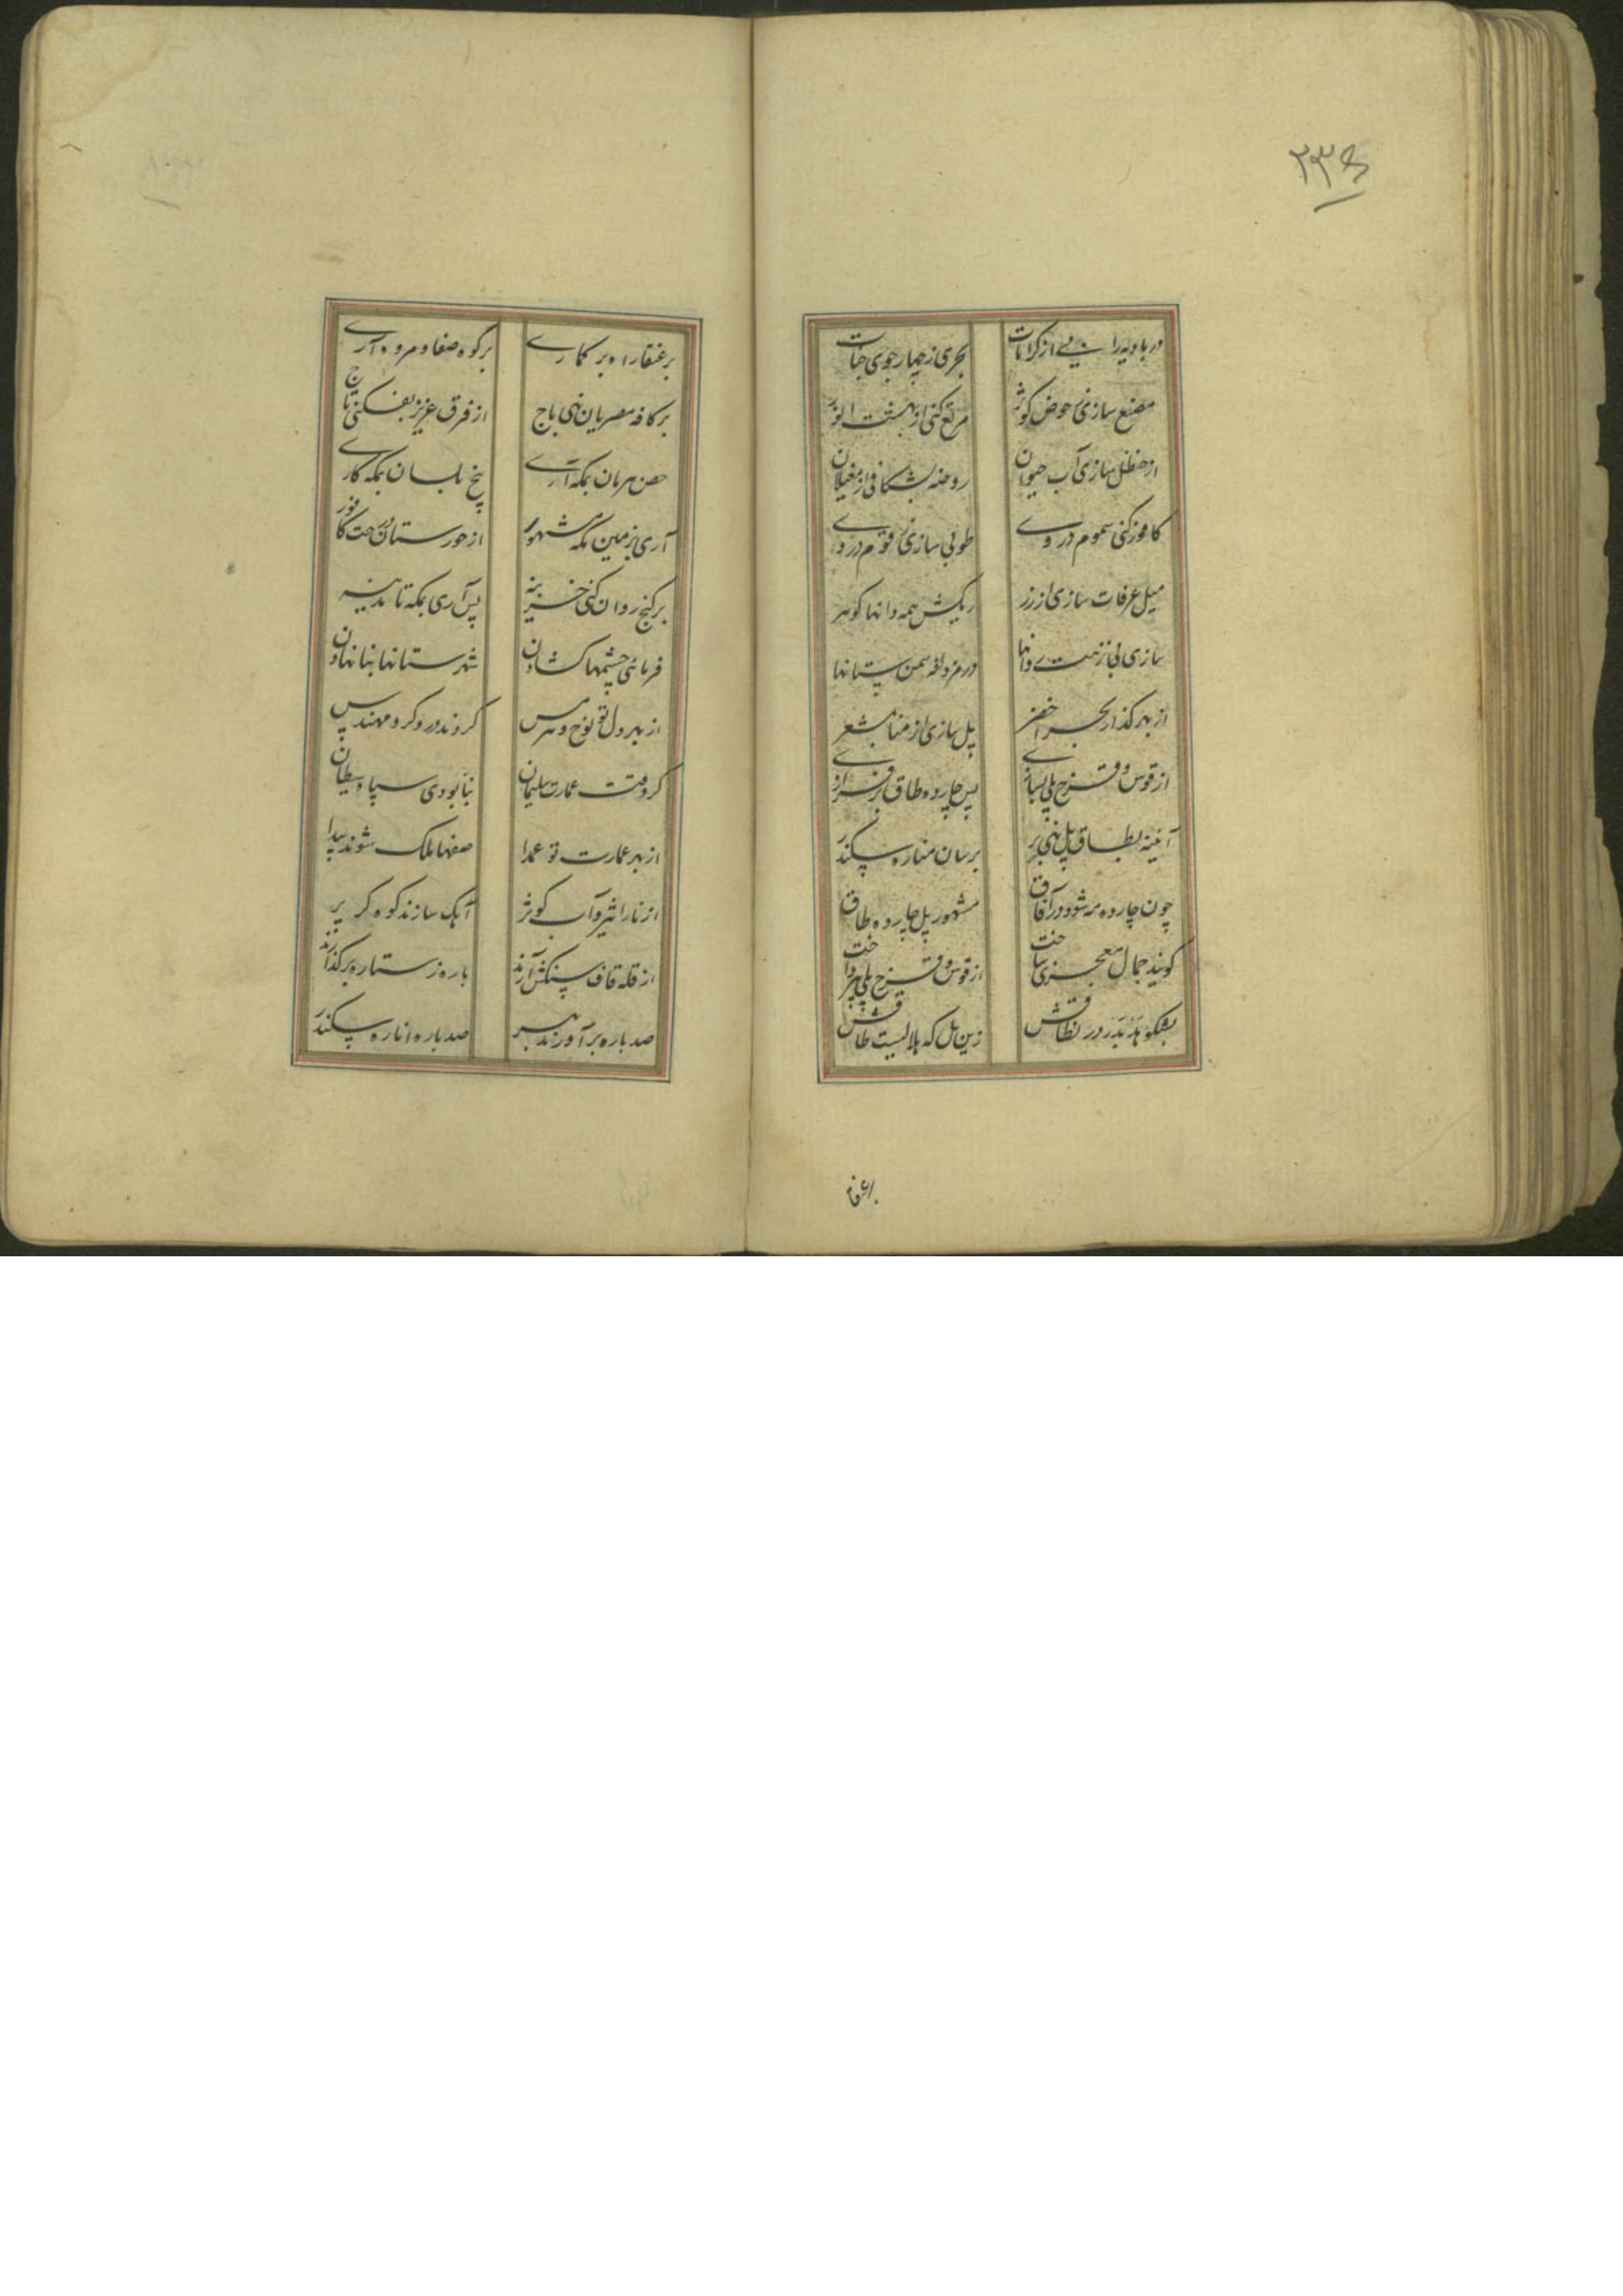 ۲۳۶
در بادیه رانی از کرامات بحری ز چهار جوی جنات
مصنع سازی ز حوض کوثر مرتع کنی از بهشت انور
از حنظل سازی آب حیوان روضه بشکافی از مغیلان
کافور کنی سموم در وی طوبی سازی ز قوم در وی
میل عرفات سازی از زر ریکش همه دانها کوهر
سازی لی نزهت روانها در مزدلفه سمن ستانها
از بهر کذار بحر اخضر پل سازی از منا بمشعر
از قوس و قزح پلی بسازی پس چارده طاق برفرازی
آئینه بطاق پل نهی بر برسان مناره سکندر
چون چارده مه شود در آفاق مشهور پل چارده طاق
کویند جمال معجزی ساخت از قوس و قزح پلی بپرداخت
بشکوهد بدر در نطاقش زین پل که هلالیست طاقش
برعنقا
بر عنقا راه بر کماری بر کوه صفا و مروه آری
بر کافه مصریان نهی باج از فرق عزیز بفکنی تاج
حصن هرمان بمکه آری بیخ بلسان بمکه کاری
آری بزمین مکه مشهور از حورستان درخت کافور
بر کنج روان کنی خزینه پس آری بمکه تا مدینه
فرمائی چشمها کشادن شهرستانها بنا نهادن
از بهر دل تو نوح و هرمس کروند درودکر و مهندس
کر وقت عمارت سلیمان بنا بودی سپاه شیطان
از بهر عمارت تو عمدا صفهاء ملک شوند پیدا
از نار اثیر و آب کوثر آهک سازند کوه کر پر
از قله قاف سنکش آرند باره ز ستاره برکذارند
صد باره برآورند بهتر صد باره از ناره سکندر